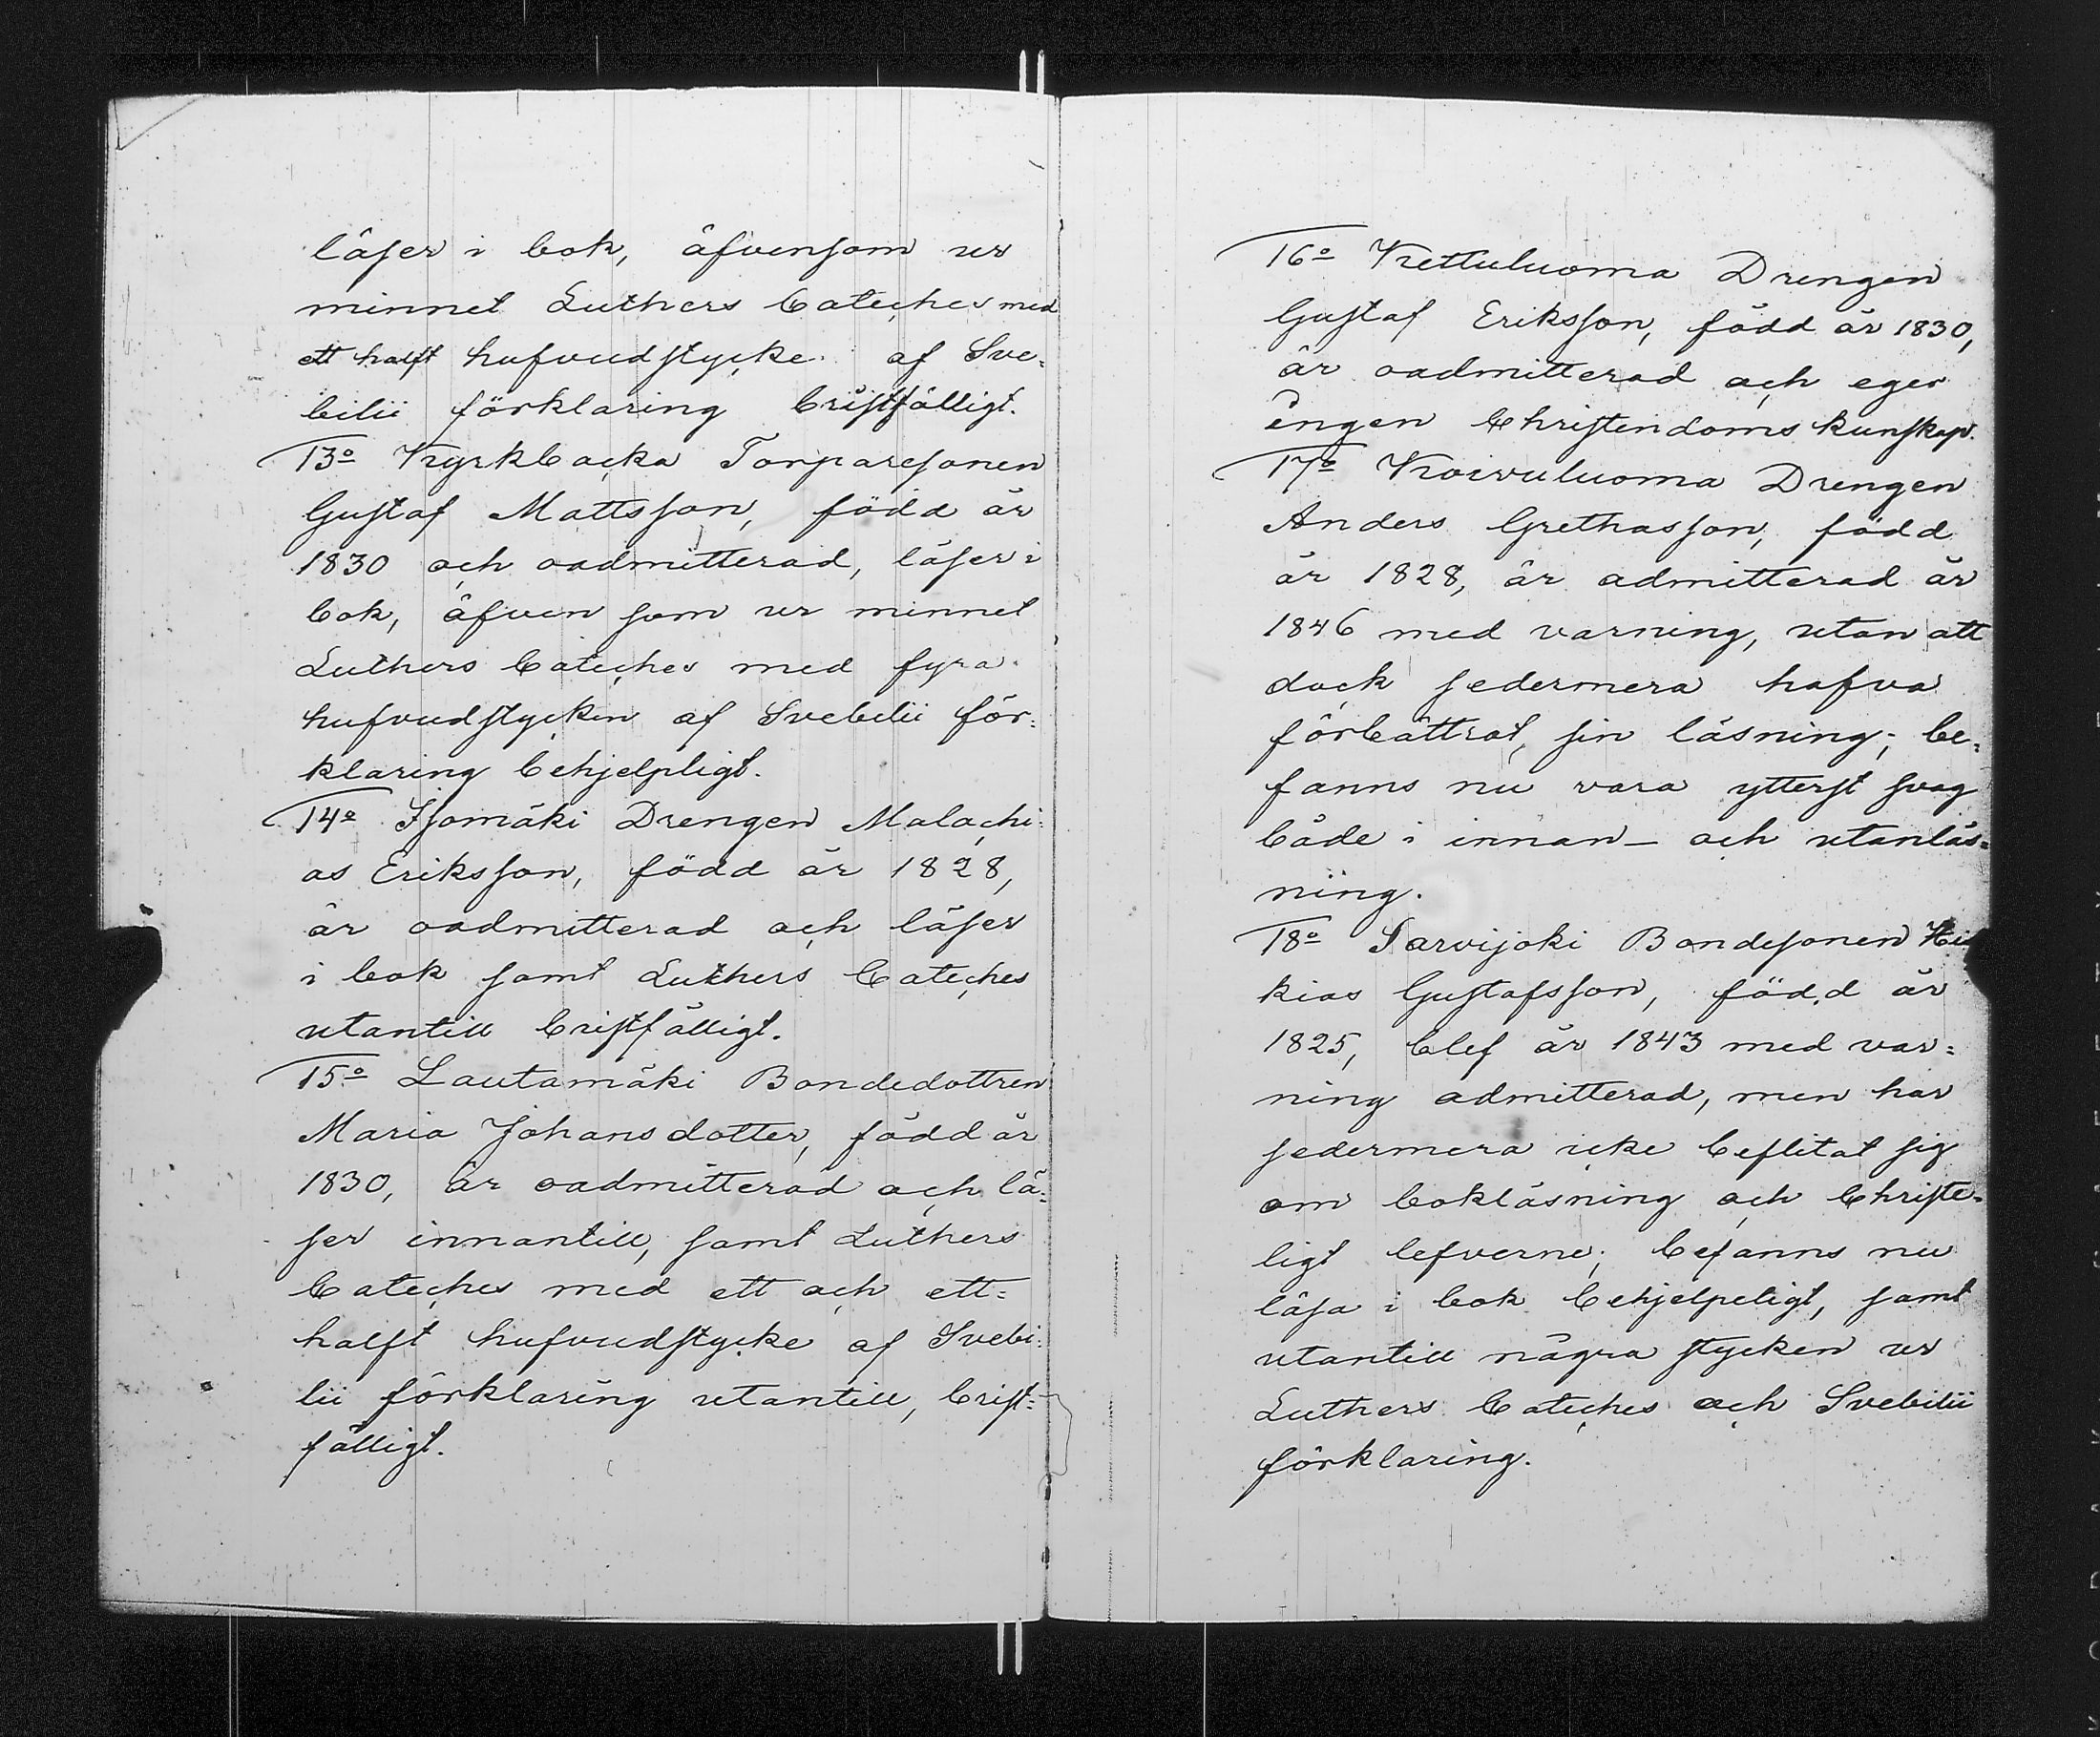 läser i bok, äfvensom ur
minnet Luthers Cateches med
ett halft hufvudstycke af Sve=
bilii förklaring bristfälligt.
13º Kyrkbacka Torparesonen
Gustaf Mattsson, född år
1830 och oadmitterad, läser i
bok, äfven som ur minnet
Luthers Cateches med fyra
hufvudstycken af Svebilii för=
klaring behjelpligt.
14º Isomäki Drengen Malachi=
as Eriksson, född år 1828,
är oadmitterad och läser
i bok samt Luthers Cateches
utantill bristfälligt.
15º Lautamäki Bondedottren
Maria Johansdotter, född år
1830, är oadmitterad och lä=
ser innantill, samt Luthers
Cateches med ett och ett=
halft hufvudstycke af Svebi=
lii förklaring utantill, brist=
fälligt.
16º Kettuluoma Drengen
Gustaf Eriksson, född år 1830,
är oadmitterad och eger
ingen Christendoms kunskap.
17º Koivuluoma Drengen
Anders Grethasson, född
år 1828, är admitterad år
1846 med varning, utan att
dock sedermera hafva
förbättrat sin läsning; be=
fanns nu vara ytterst svag
både i innan- och utanläs=
ning.
18º Sarvijoki Bondesonen His
kias Gustafsson, född år
1825, blef år 1843 med var=
ning admitterad, men har
sedermera icke beflitat sig
om bokläsning och Christe=
ligt lefverne; befanns nu
läsa i bok behjelpeligt, samt
utantill några stycken ur
Luthers Cateches och Svebilii
förklaring.